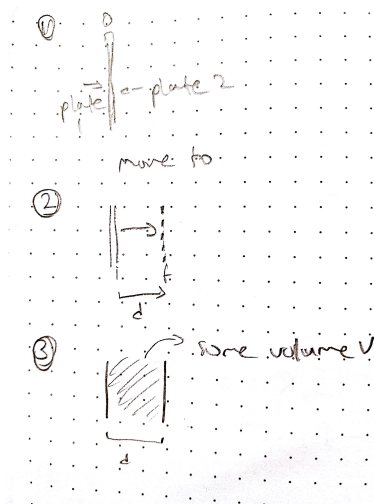 ①
0
plate 1
plate 2
move to
②
d
f
③
some volume V
d